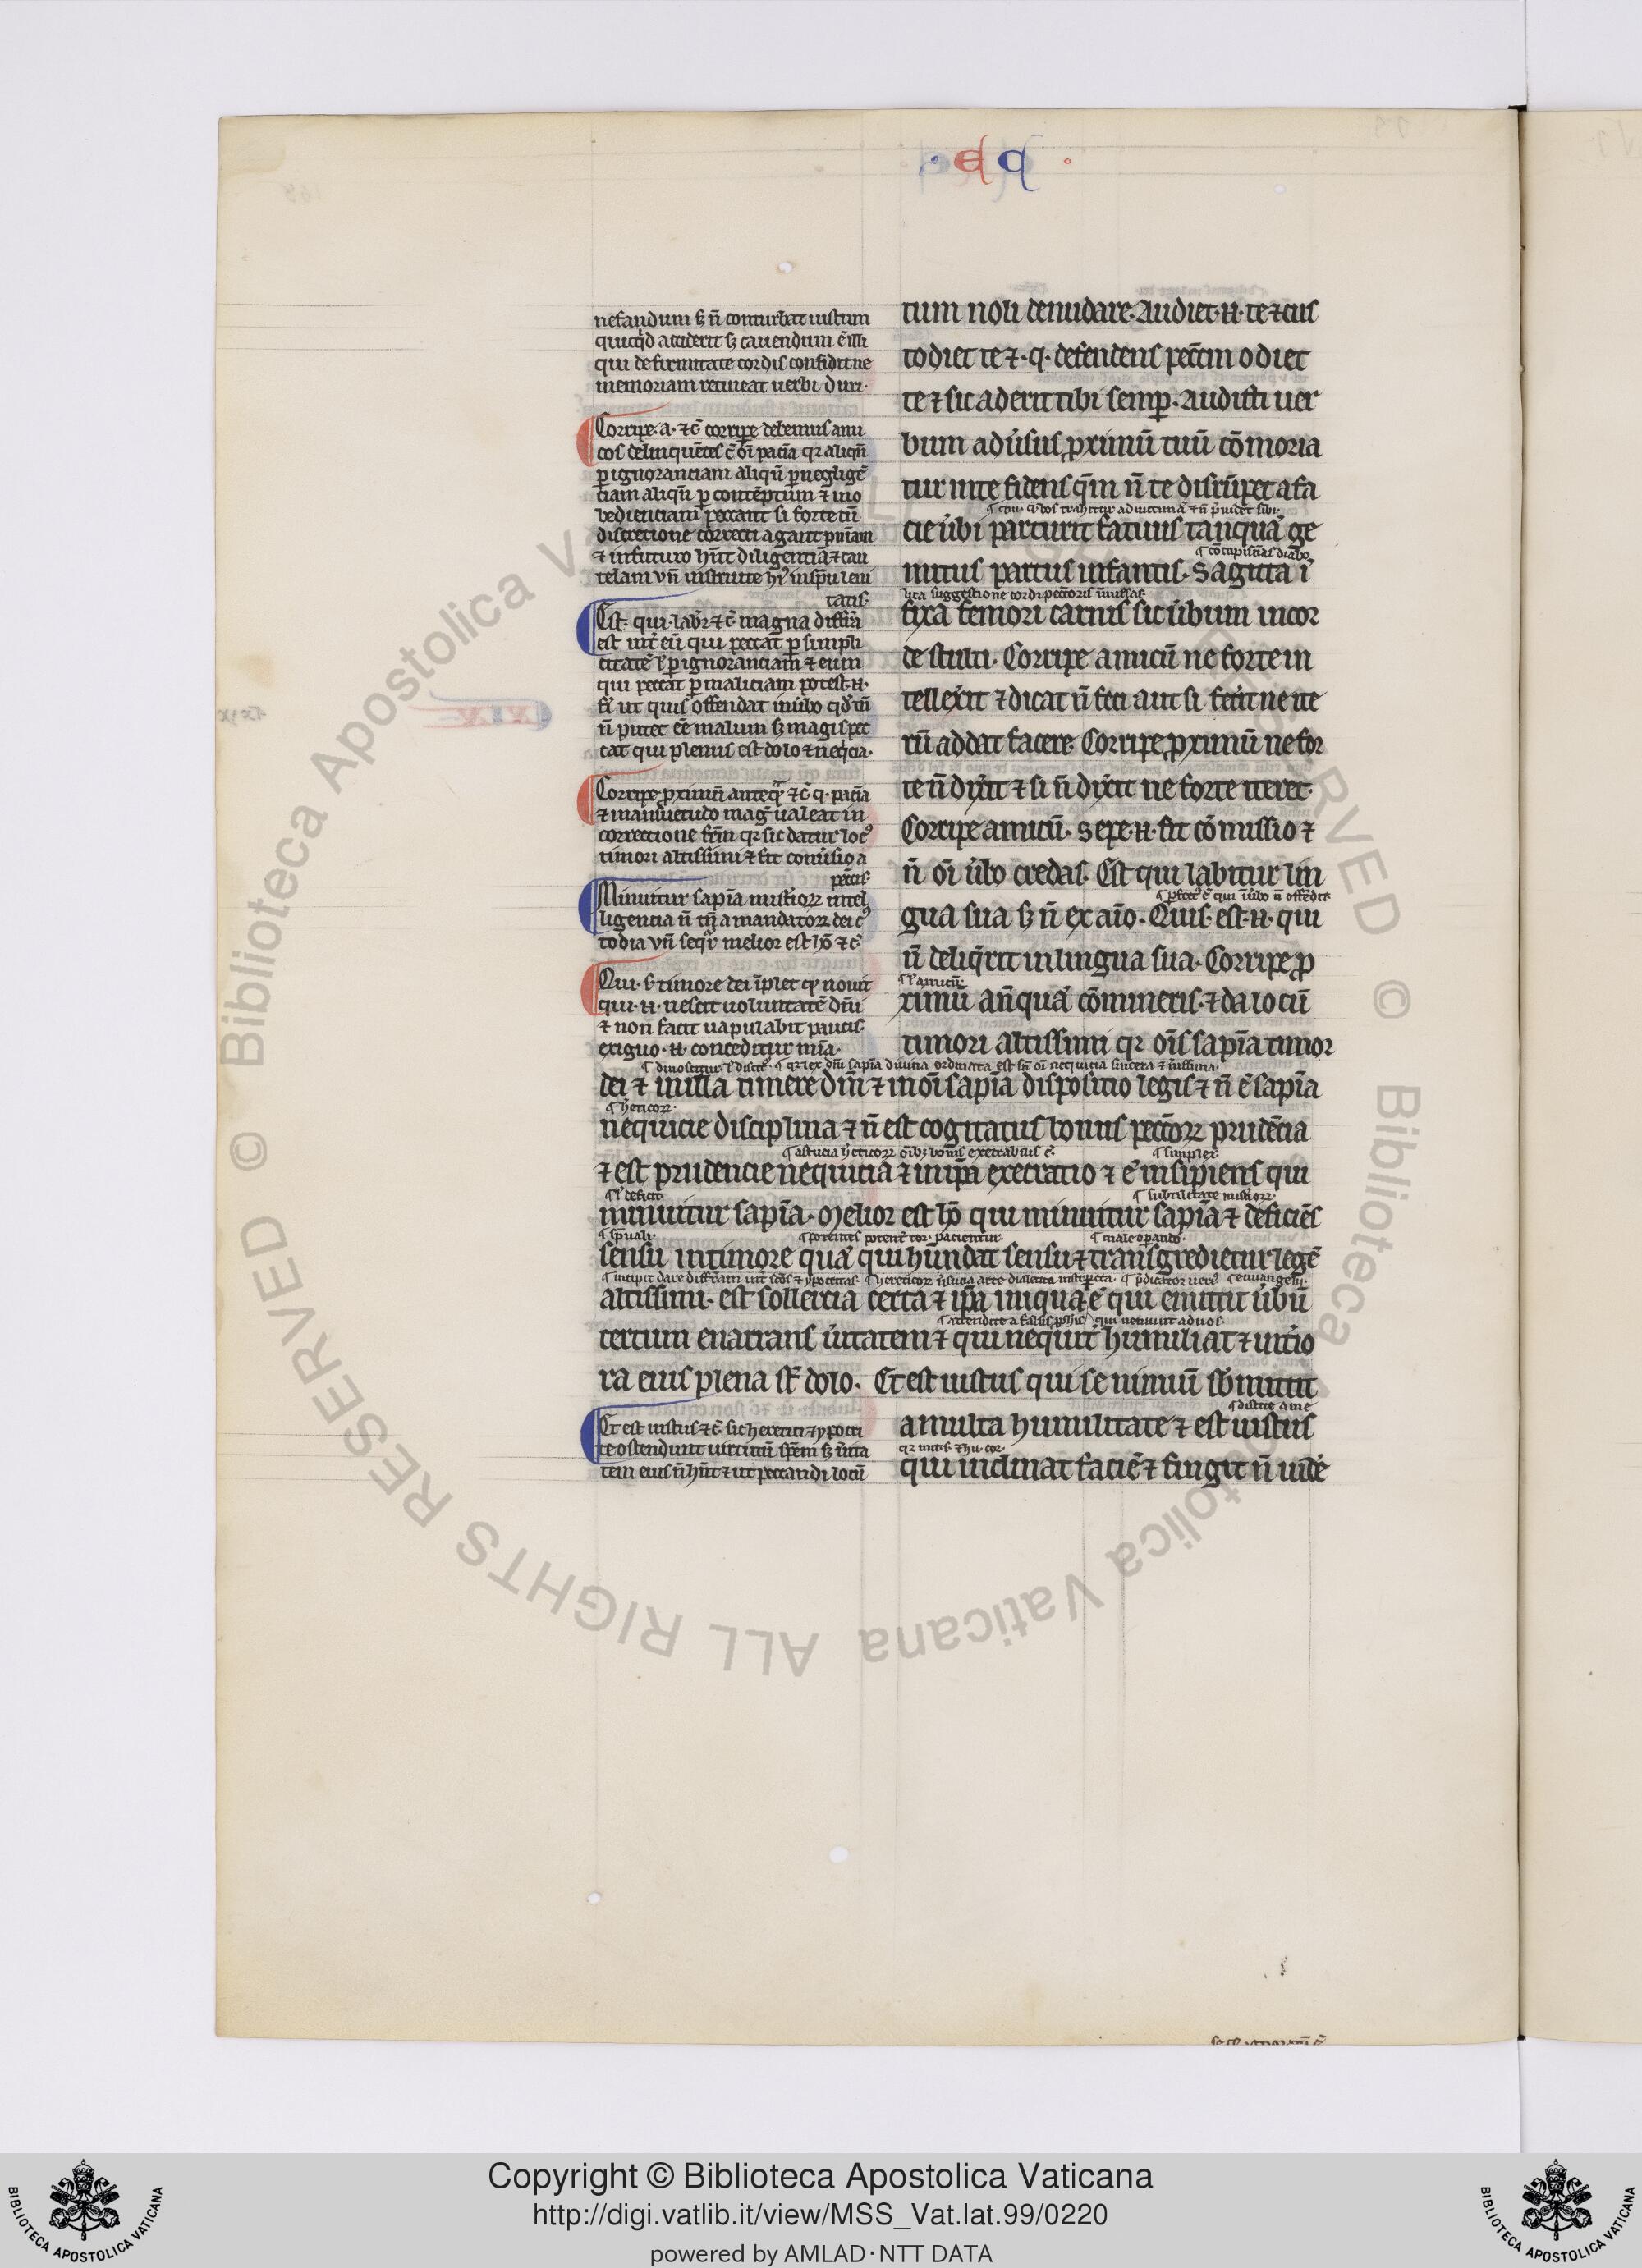 · E C q ·
nefandum sꝫ n̄ conturbat iustum
quicq͛d acciderit sꝫ cauendum ē illi
qui de firmitate cordis confidit ne
memoriam retineat uerbi duri·
Corripe·a· ⁊c̄ corripe debemus ami
cos delinquētes c̄ oī paciā qꝛ aliqn̄
ꝑ ignoranciam aliqn̄ ꝑ negligē
ciam aliqn̄ ꝑ contēptum ⁊ ino
bedienciam peccant si forte cū
discretione correcti agant pn̄iam
⁊ in futuro hn̄t diligentiā ⁊ cau
telam vn̄ instruite hꝰ in spū leni
tatis·
Est· qui· labr̄ ⁊c̄ magna diffīa
est int͛ eū qui peccat ꝑ simpli
citatē ł ꝑ ignoranciam ⁊ eum
qui peccat ꝑ maliciam potest·n·
fi͛ ut quis offendat in u͛bo qd͛ tn̄
n̄ putet ēē malum sꝫ magis pec
cat qui plenus est dolo ⁊ neq͛cia·
Corripe ꝓximū anteqͣ ⁊c̄ q· paciā
⁊ mansuetudo mag̅ ualeat in
correctione frm̄ qꝛ sic datur locꝰ
timori altissimi ⁊ fit conu͛sio a
pcc̄tis·
Minuitur sapīa mistioꝝ intel
ligencia n̄ tn̄ a mandatoꝝ dei cꝰ
todia vn̄ seqr͛ melior est hō ⁊c̄
Qui· s· timore dei īplet qꝫ nouit
qui·n· nescit uoluntatē dn̄i
⁊ non facit uapulabit paucis·
exiguo·n· conceditur mīa·
tum noli denudare· Audiet·n· te ⁊ cus
todiet te ⁊·q· defendens pctm̄ odiet
te ⁊ sic aderit tibi semꝑ· Audisti uer
bum adu͛sus ꝓximū tuū cōmoria
tur in te fidens qm̄ n̄ te disrūpet a fa
cie u͛bi parturit fatuus tanquā ge
mitus partus infantis· Sagitta ī
fixa femori carnis sic u͛bum in cor
de stulti· Corripe amicū ne forte in
tellex͛it ⁊ dicat n̄ feci aut si fec͛it ne ite
rū addat facere Corripe ꝓximū ne for
te n̄ dix͛it ⁊ si n̄ dix͛it ne forte iteret·
Corripe amicū· sepe·n· fit cōmissio ⁊
n̄ oī u͛bo credas· Est qui labitur lin
gua sua sꝫ n̄ ex aīo· Quis· est·n· qui
n̄ deliq͛rit in lingua sua· Corripe ꝓ
ximū an̄quā cōmineris· ⁊ da locū
timori altissimi qꝛ oīs sapīa timor
dei ⁊ in illa timere dm̄ ⁊ in oī sapīa dispositio legis ⁊ n̄ ē sapīa
nequicie disciplina ⁊ n̄ est cogitatus bonus pccōꝝ prudēcia
⁊ est prudencie nequicia ⁊ in ip̄a execratio ⁊ ē insipiens qui
minuitur sapīa· Melior est hō qui minuitur sapīa ⁊ deficiēs
sensu in timore quā qui hūndat sensu ⁊ transgredietur legē
altissimi· est sollercia certa ⁊ ip̄a iniqua· ē qui emittit u͛bū
certum enarrans u͛itatem ⁊ qui nequit͛ humiliat ⁊ int͛io
ra eius plena sт̄ dolo· Et est iustus qui se nimiū sb̄mittit
a multa humilitate ⁊ est iustus
qui inclinat faciē ⁊ fingit n̄ uidē͛
Et est iustus ⁊c̄ sic heretici ⁊ ypocri
te ostendunt uirtutū spēm sꝫ u͛ita
tem eius n̄ hn̄t ⁊ ut peccandi locū
Copyright © Biblioteca Apostolica Vaticana
http://digi.vatlib.it/view/MSS_Vat.lat.99/0220
powered by AMLAD·NTT DATA
BIBLIOTECA APOSTOLICA VATICANA
BIBLIOTECA APOSTOLICA VATICANA
© Biblioteca Apostolica Vaticana ALL RIGHTS RESERVED